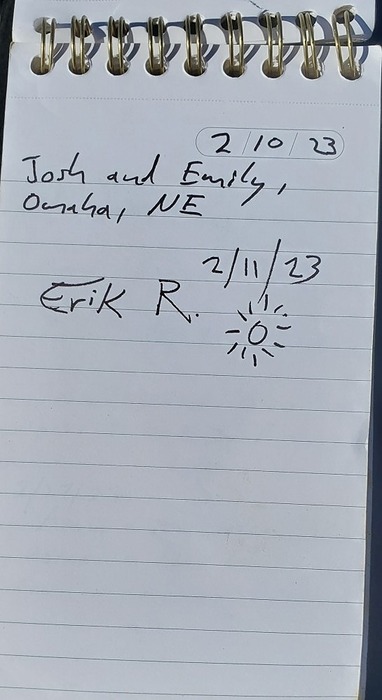 2/10/23
Josh and Emily,
Omaha, NE
2/11/23
Erik R.